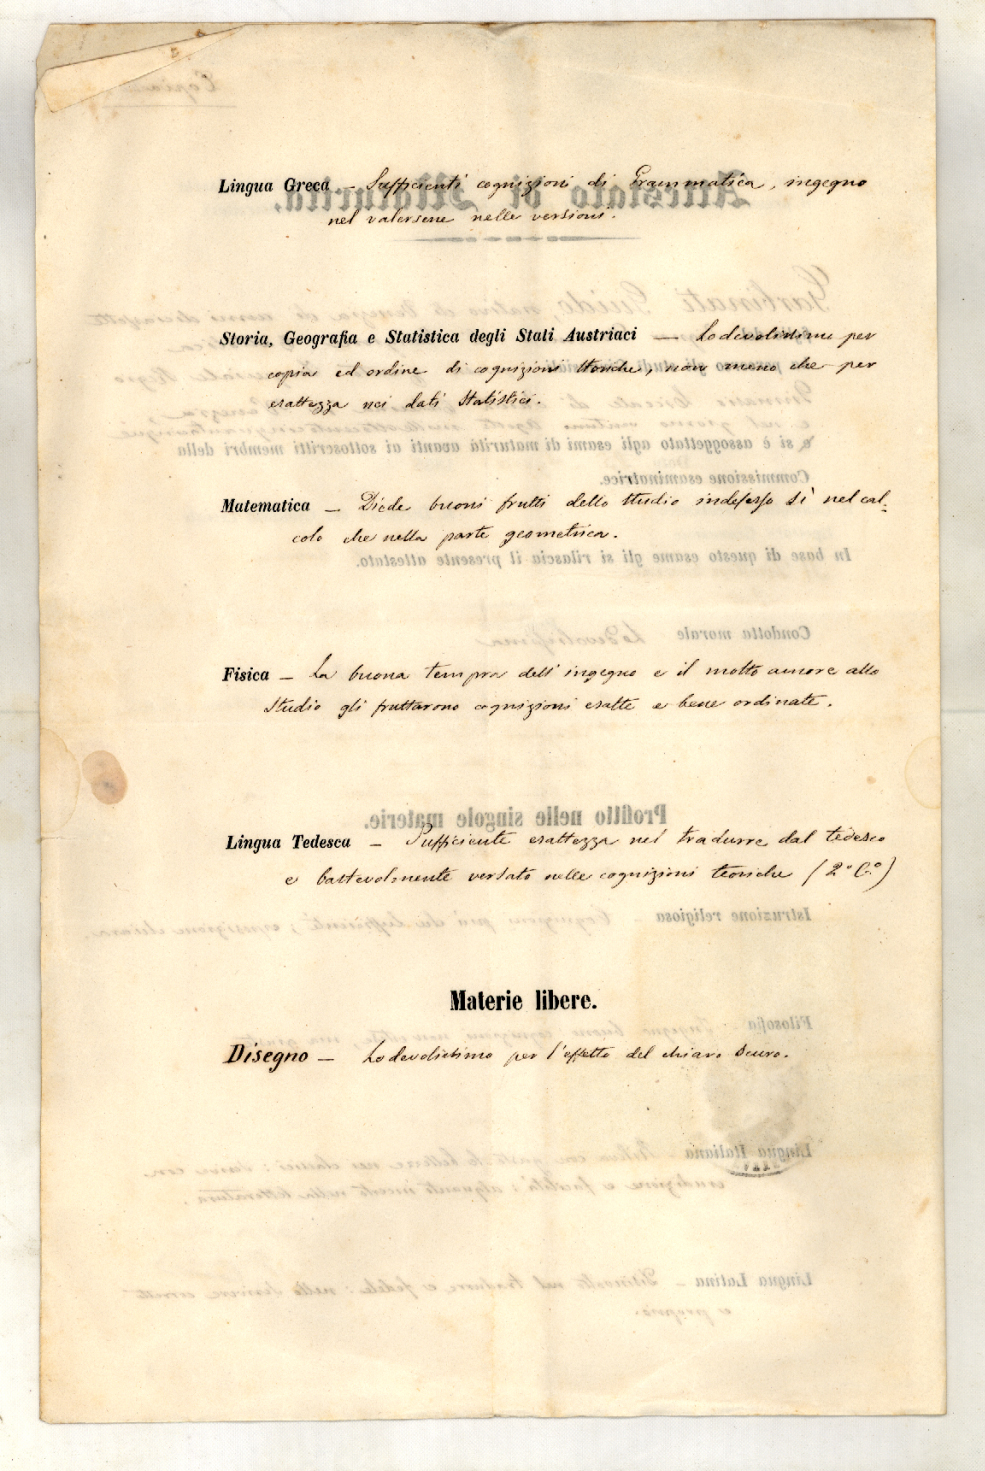 Lingua Greca — Sufficienti cognizioni di Grammatica, ingegno
nel valersene nelle versioni.
Storia, Geografia e Statistica degli Stati Austriaci — Lodevolissimo per
copia ed ordine di cognizioni storiche, non meno che per
esattezza nei dati statistici.
Matematica — Diede buoni frutti dello studio indefesso sì nel cal-
colo che nella parte geometrica.
Fisica — La buona tempra dell'ingegno e il molto amore allo
studio gli fruttarono cognizioni esatte e bene ordinate.
Lingua Tedesca — Sufficiente esattezza nel tradurre dal tedesco
e bastevolmente versato nelle cognizioni teoriche (2° C.°)
Materie libere.
Disegno — Lodevolissimo per l'effetto del chiaro scuro.